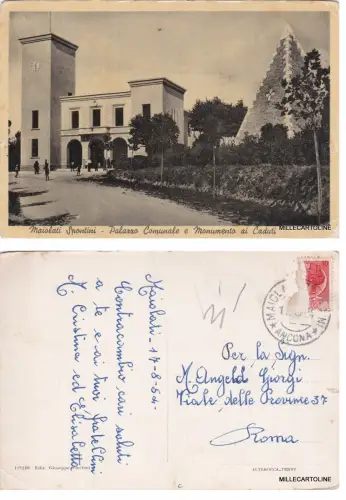 Maiolati Spontini - Palazzo Comunale e Monumento ai Caduti
MILLECARTOLINE
Maiolati - 17-8-54
Contracambio cari saluti
a te e ai tuoi fratellini
M. Cristina ed
Elisabetta
MAIOL
ANCONA
Per la Sign.
M. Angela Giorgi
Viale delle Provincie 37
Roma
MILLECARTOLINE